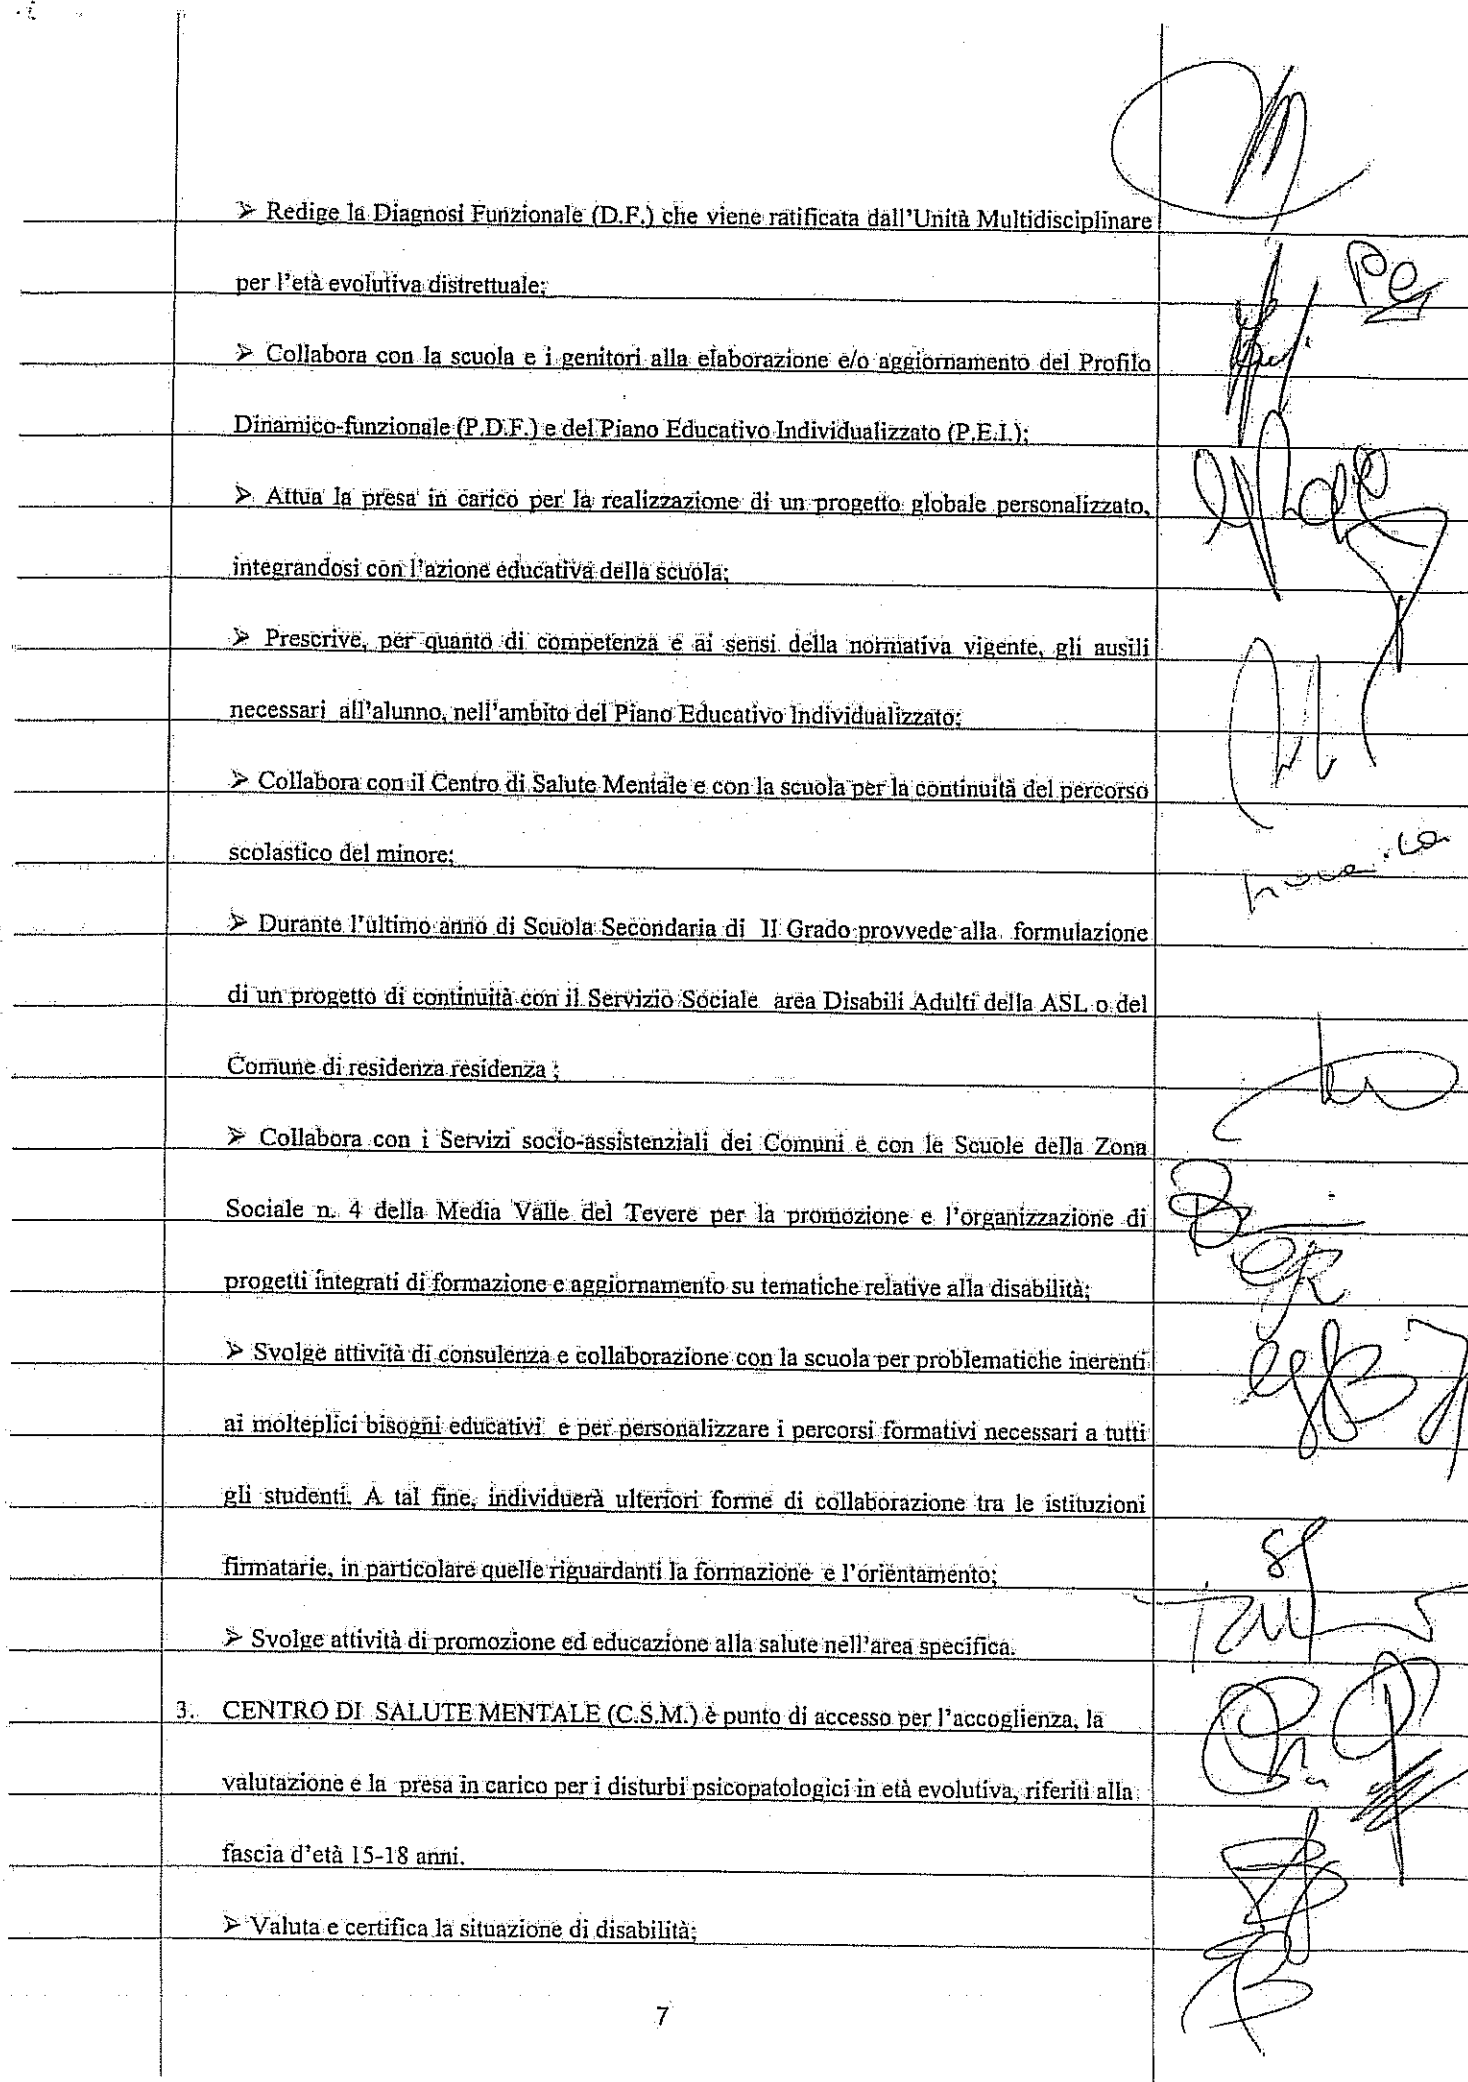 ➢ Redige la Diagnosi Funzionale (D.F.) che viene ratificata dall'Unità Multidisciplinare
per l'età evolutiva distrettuale;
➢ Collabora con la scuola e i genitori alla elaborazione e/o aggiornamento del Profilo
Dinamico-funzionale (P.D.F.) e del Piano Educativo Individualizzato (P.E.I.);
➢ Attua la presa in carico per la realizzazione di un progetto globale personalizzato,
integrandosi con l'azione educativa della scuola;
➢ Prescrive, per quanto di competenza e ai sensi della normativa vigente, gli ausili
necessari all'alunno, nell'ambito del Piano Educativo Individualizzato;
➢ Collabora con il Centro di Salute Mentale e con la scuola per la continuità del percorso
scolastico del minore;
➢ Durante l'ultimo anno di Scuola Secondaria di II Grado provvede alla formulazione
di un progetto di continuità con il Servizio Sociale area Disabili Adulti della ASL o del
Comune di residenza residenza ;
➢ Collabora con i Servizi socio-assistenziali dei Comuni e con le Scuole della Zona
Sociale n. 4 della Media Valle del Tevere per la promozione e l'organizzazione di
progetti integrati di formazione e aggiornamento su tematiche relative alla disabilità;
➢ Svolge attività di consulenza e collaborazione con la scuola per problematiche inerenti
ai molteplici bisogni educativi e per personalizzare i percorsi formativi necessari a tutti
gli studenti. A tal fine, individuerà ulteriori forme di collaborazione tra le istituzioni
firmatarie, in particolare quelle riguardanti la formazione e l'orientamento;
➢ Svolge attività di promozione ed educazione alla salute nell'area specifica.
3. CENTRO DI SALUTE MENTALE (C.S.M.) è punto di accesso per l'accoglienza, la
valutazione e la presa in carico per i disturbi psicopatologici in età evolutiva, riferiti alla
fascia d'età 15-18 anni.
➢ Valuta e certifica la situazione di disabilità;
7